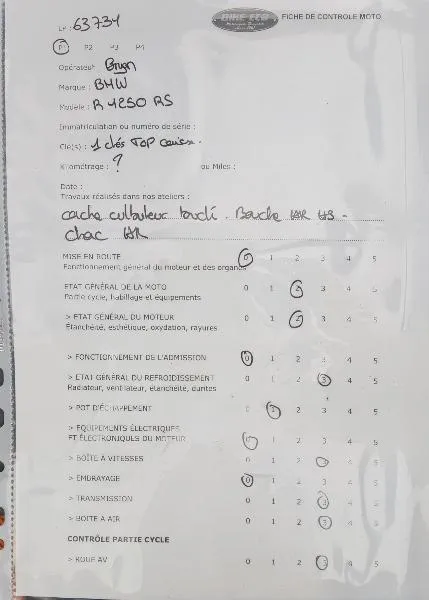 LP : 63734
BIKE ECO
FICHE DE CONTROLE MOTO
P1 P2 P3 P4
Opérateur : Bryan
Marque : BMW
Modèle : R 1250 RS
Immatriculation ou numéro de série :
Clé(s) : 1 clés TOP
Kilométrage : ? ou Miles :
Date :
Travaux réalisés dans nos ateliers :
cache culbuteur
MISE EN ROUTE 0 1 2 3 4 5
Fonctionnement général du moteur et des organes
ETAT GÉNÉRAL DE LA MOTO 0 1 2 3 4 5
Partie cycle, habillage et équipements
> ETAT GÉNÉRAL DU MOTEUR 0 1 2 3 4 5
Étanchéité, esthétique, oxydation, rayures
> FONCTIONNEMENT DE L'ADMISSION 0 1 2 3 4 5
> ETAT GÉNÉRAL DU REFROIDISSEMENT 0 1 2 3 4 5
Radiateur, ventilateur, étanchéité, durites
> POT D'ÉCHAPPEMENT 0 1 2 3 4 5
> EQUIPEMENTS ÉLECTRIQUES
ET ÉLECTRONIQUES DU MOTEUR 0 1 2 3 4 5
> BOÎTE A VITESSES 0 1 2 3 4 5
> EMBRAYAGE 0 1 2 3 4 5
> TRANSMISSION 0 1 2 3 4 5
> BOITE A AIR 0 1 2 3 4 5
CONTRÔLE PARTIE CYCLE
> ROUE AV 0 1 2 3 4 5